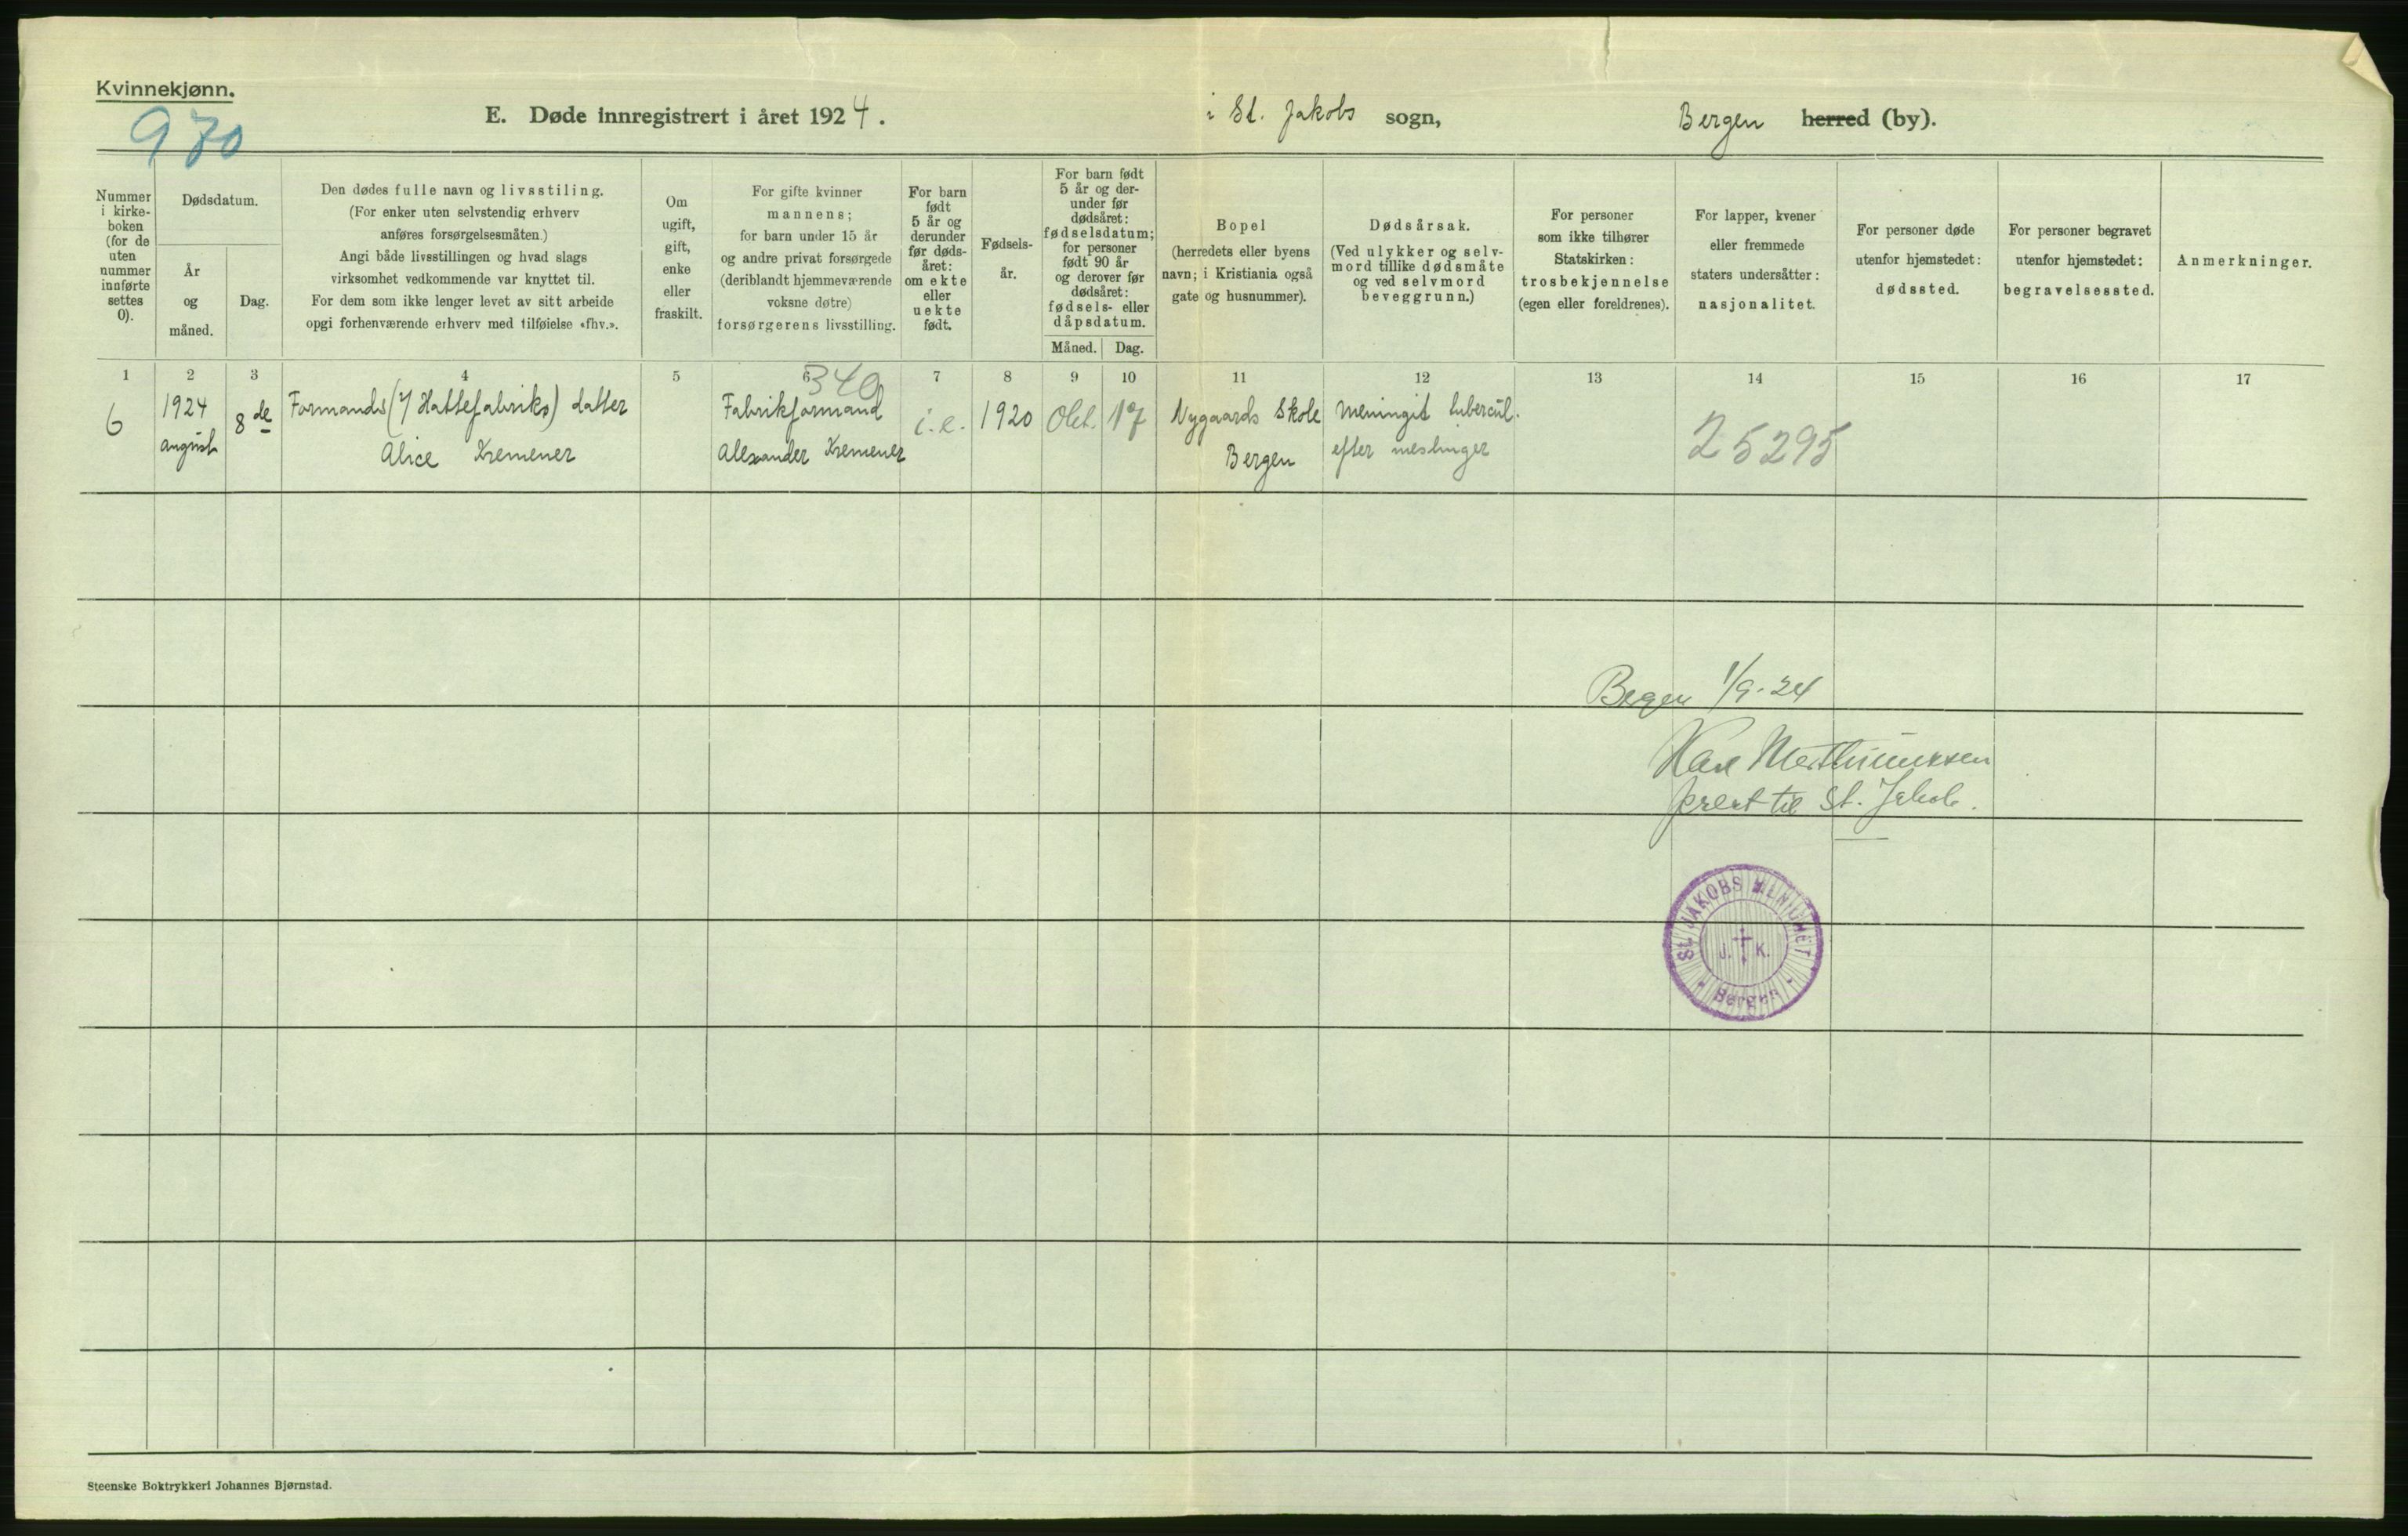 Kvinnekjønn.
970
E. Døde innregistrert i året 1924. i St. Jakobs sogn, Bergen herred (by).
Nummer
i kirke-
boken
(for de
uten
nummer
innførte
settes
0).
Dødsdatum.
År
og
måned.
Dag.
Den dødes fulle navn og livsstiling.
(For enker uten selvstendig erhverv
anføres forsørgelsesmåten.)
Angi både livsstillingen og hvad slags
virksomhet vedkommende var knyttet til.
For dem som ikke lenger levet av sitt arbeide
opgi forhenværende erhverv med tilføielse «fhv.».
Om
ugift,
gift,
enke
eller
fraskilt.
For gifte kvinner
mannens;
for barn under 15 år
og andre privat forsørgede
(deriblandt hjemmeværende
voksne døtre)
forsørgerens livsstilling.
For barn
født
5 år og
derunder
før døds-
året:
om ekte
eller
uekte
født.
Fødsels-
år.
For barn født
5 år og der-
under før
dødsåret:
fødselsdatum;
for personer
født 90 år
og derover før
dødsåret:
fødsels- eller
dåpsdatum.
Måned. Dag.
Bopel
(herredets eller byens
navn; i Kristiania også
gate og husnummer).
Dødsårsak.
(Ved ulykker og selv-
mord tillike dødsmåte
og ved selvmord
beveggrunn.)
For personer
som ikke tilhører
Statskirken:
trosbekjennelse
(egen eller foreldrenes).
For lapper, kvener
eller fremmede
staters undersåtter:
nasjonalitet.
For personer døde
utenfor hjemstedet:
dødssted.
For personer begravet
utenfor hjemstedet:
begravelsessted.
Anmerkninger.
1 2 3 4 5 6 7 8 9 10 11 12 13 14 15 16 17
340
6 1924 8de Formands (v/ Hattefabriks) datter Fabrikformand i.e. 1920 Okt. 17 Nygaards Skole Meningit tubercul.
august Alice Kremener Alexander Kremener Bergen efter meslinger
25295
Bergen 1/9-24
prest til St. Jakob.
ST. JAKOBS MENIGHET
J. K.
Bergen
Steenske Boktrykkeri Johannes Bjørnstad.